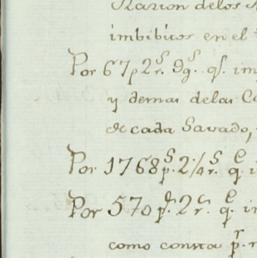 Razon de los
imbibitos en el
Por 67p 2r. 9gs. qe. im
y demas de las Co
de cada Savado,
Por 1768ps 2 1/4rs. qe. i
Por 570ps. 2rs. qe. in
como consta pr. r